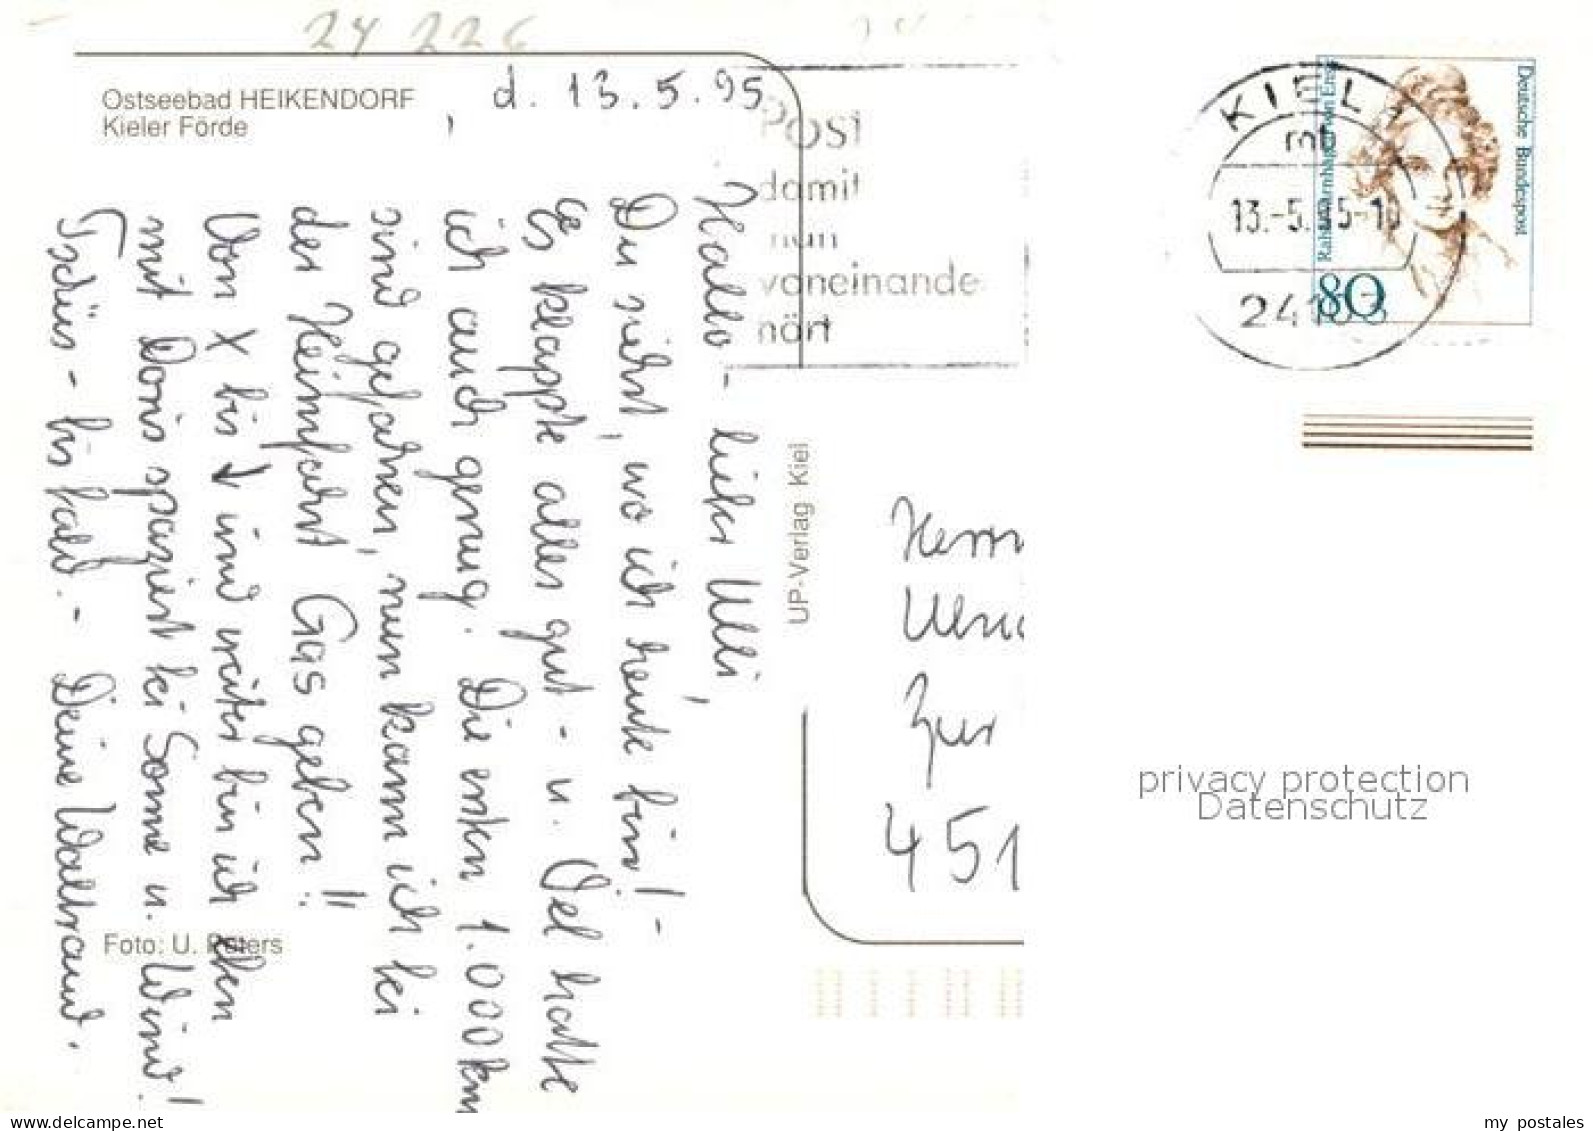 24 226
Ostseebad HEIKENDORF
Kieler Förde
, d. 13.5.95
Hallo - lieber Ulli,
Du siehst, wo ich heute bin! -
Es klappte alles gut - u. Oel hatte
ich auch genug. Die ersten 1.000 km
sind gefahren, nun kann ich bei
der Heimfahrt Gas geben!!
Von X bis ↓ und weiter bin ich eben
mit Doris spaziert bei Sonne u. Wind!
Tschüs - bis bald. - Deine Waltraud.
Foto: U. Peters
UP-Verlag Kiel
Post
damit
man
voneinander
hört
KIEL
mb
13.-5.95-10
24103
Deutsche Bundespost
Rahel Varnhagen von Ense
80
Herrn
Zur
451
privacy protection
Datenschutz
delcampe.net
my_postales